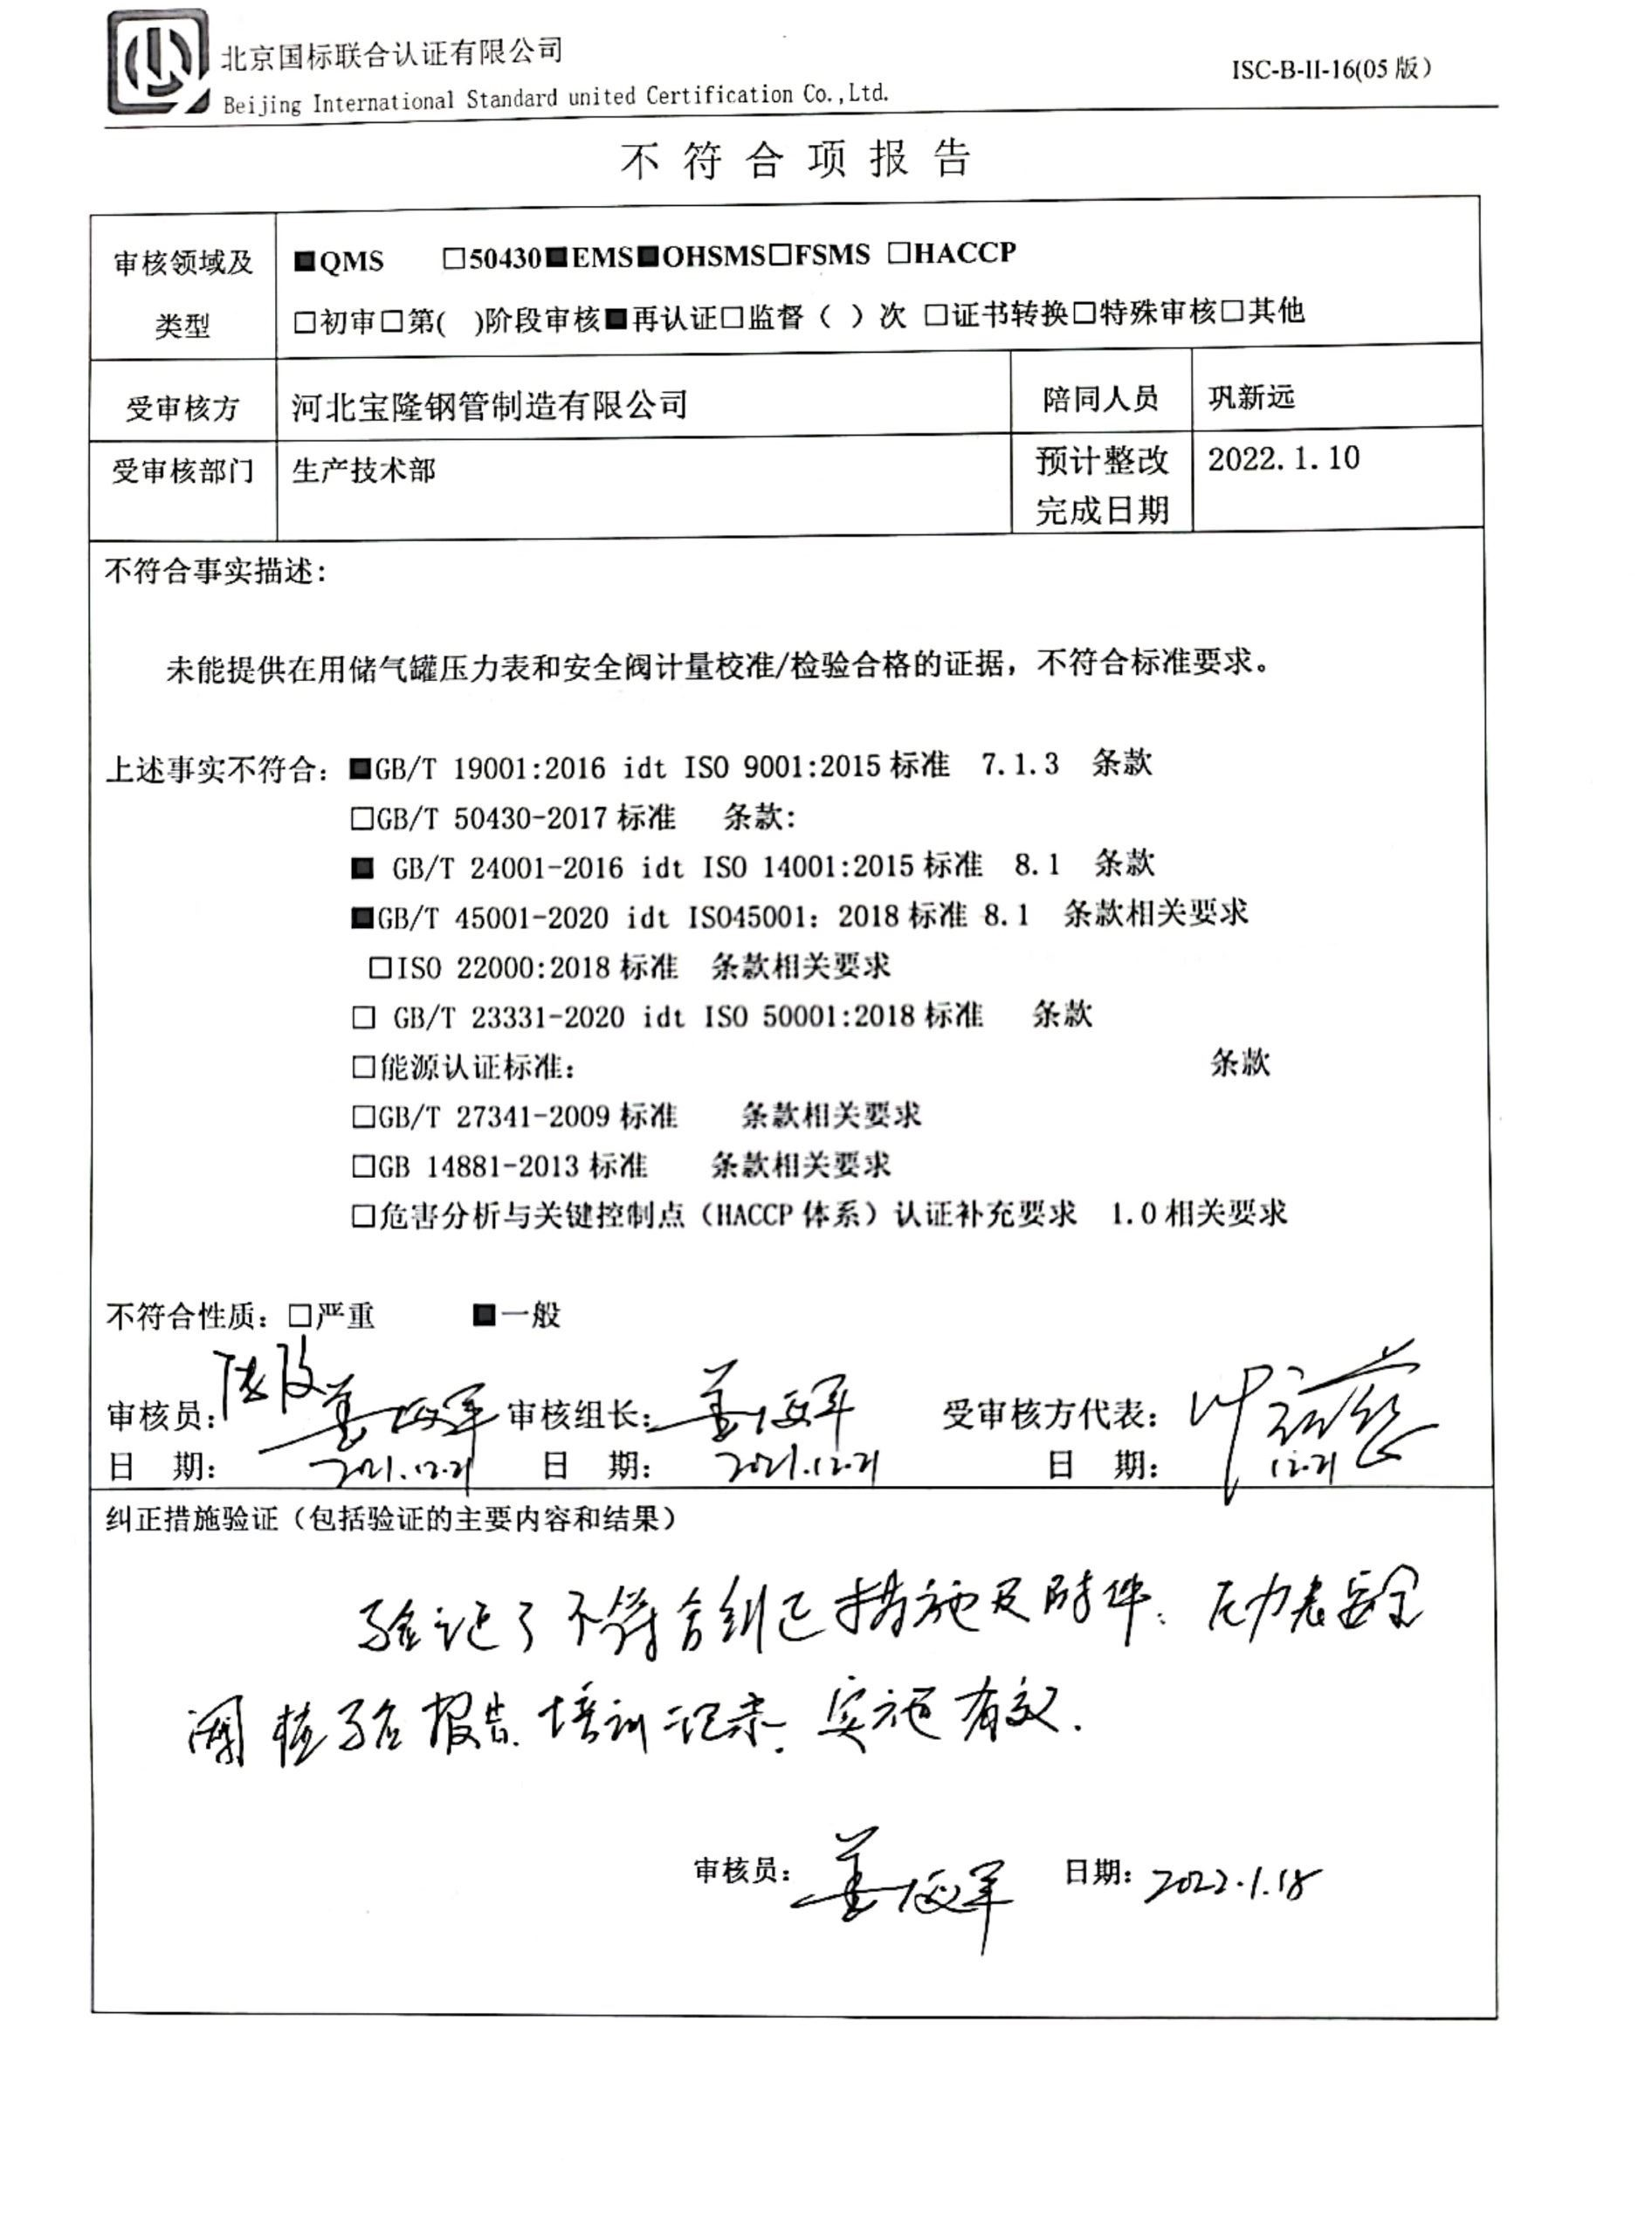 北京国标联合认证有限公司
ISC-B-II-16(05 版）
Beijing International Standard united Certification Co.,Ltd.
不符合项报告
审核领域及类型
■QMS □50430■EMS■OHSMS□FSMS □HACCP
□初审□第( )阶段审核■再认证□监督（ ）次 □证书转换□特殊审核□其他
受审核方 河北宝隆钢管制造有限公司 陪同人员 巩新远
受审核部门 生产技术部 预计整改完成日期 2022.1.10
不符合事实描述：
未能提供在用储气罐压力表和安全阀计量校准/检验合格的证据，不符合标准要求。
上述事实不符合：■GB/T 19001:2016 idt ISO 9001:2015 标准 7.1.3 条款
□GB/T 50430-2017 标准 条款：
■ GB/T 24001-2016 idt ISO 14001:2015 标准 8.1 条款
■GB/T 45001-2020 idt ISO45001：2018 标准 8.1 条款相关要求
□ISO 22000:2018 标准 条款相关要求
□ GB/T 23331-2020 idt ISO 50001:2018 标准 条款
□能源认证标准： 条款
□GB/T 27341-2009 标准 条款相关要求
□GB 14881-2013 标准 条款相关要求
□危害分析与关键控制点（HACCP 体系）认证补充要求 1.0 相关要求
不符合性质：□严重 ■一般
审核员： 审核组长： 受审核方代表：
日 期： 2021.12.21 日 期： 2021.12.21 日 期： 12.21
纠正措施验证（包括验证的主要内容和结果）
验证了不符合纠正措施及附件：压力表安全
阀校验报告、培训记录。实施有效.
审核员： 日期：2022.1.18